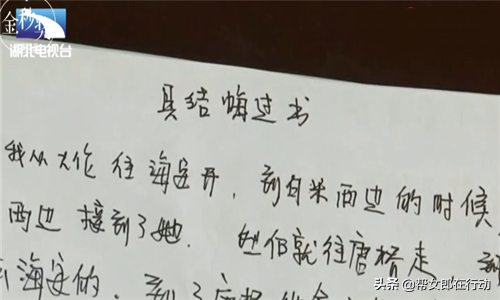 湖北电视台
具结悔过书
我从大佗往海安开,到白米西边的时候
西边接到了她. 她们就往唐桥走
海安的.到了唐桥
头条 @帮女郎在行动